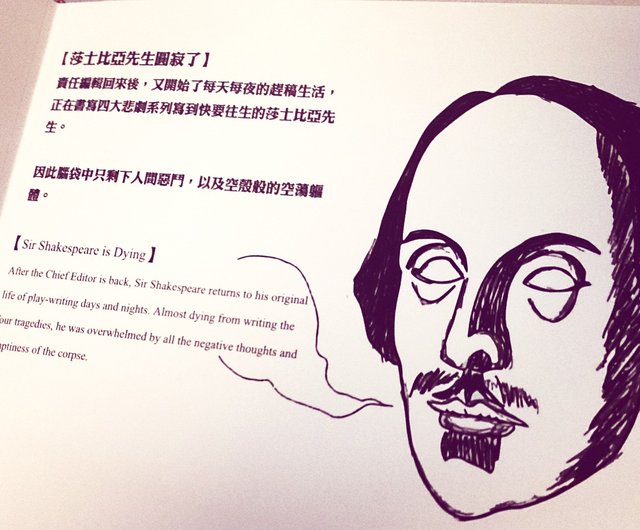 【莎士比亞先生圓寂了】
責任編輯回來後，又開始了每天每夜的趕稿生活，
正在書寫四大悲劇系列寫到快要往生的莎士比亞先
生。
因此腦袋中只剩下人間惡鬥，以及空殼般的空蕩軀
體。
【Sir Shakespeare is Dying】
After the Chief Editor is back, Sir Shakespeare returns to his original
life of play-writing days and nights. Almost dying from writing the
four tragedies, he was overwhelmed by all the negative thoughts and
of the corpse.